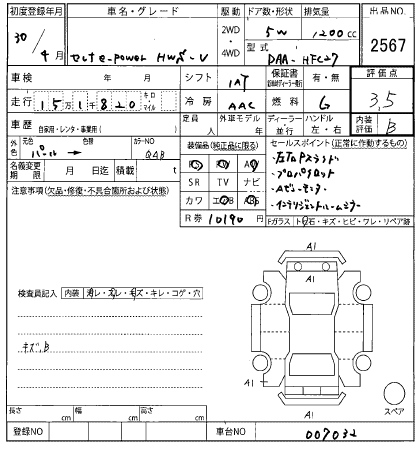 初度登録年月 車名・グレード 駆動 ドア数・形状 排気量 出品NO.
30/4月 セレナe-power HWS-V 2WD・4WD 5W 1200cc 2567
型式 DAA-HFC27
車検 年 月 シフト IAT 保証書 有・無 評価点
走行 15万1千820 キロ マイル 冷房 AAC 燃料 G 3,5
車歴 自家用・レンタ・事業用( ) 定員 外車モデル 年 ディーラー・並行 ハンドル 左・右 内装評価 B
外色 元色 パール → 色替 カラーNO QAB
装備品(純正品に限る) セールスポイント(正常に作動するもの)
名義変更期限 月 日 積載 t
PS PW AW
・プロパイロット
注意事項(欠品・修復・不具合箇所および状態)
SR TV ナビ
・Aビューモニター
カワ エアB ABS
・インテリジェントルームミラー
R券 10190 円
Fガラス トビ石・キズ・ヒビ・ワレ・リペア跡
A1
A1
検査員記入 内装 汚レ・スレ・キズ・キレ・コゲ・穴
キズ、B
A1
A1
スペア
長さ cm 幅 cm 高さ cm
登録NO 車台NO 007032